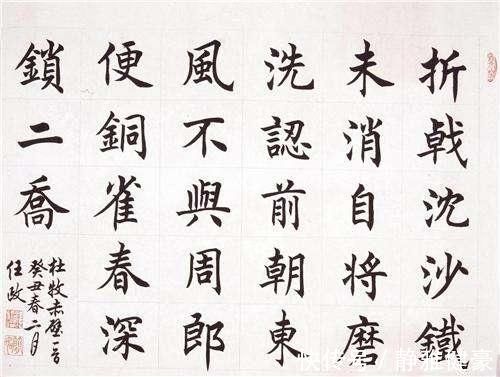 折戟沈沙鐵
未消自將磨
洗認前朝東
風不與周郎
便銅雀春深
鎖二喬
杜牧赤壁一首
癸丑春二月
任政
快传号 / 静雅健豪